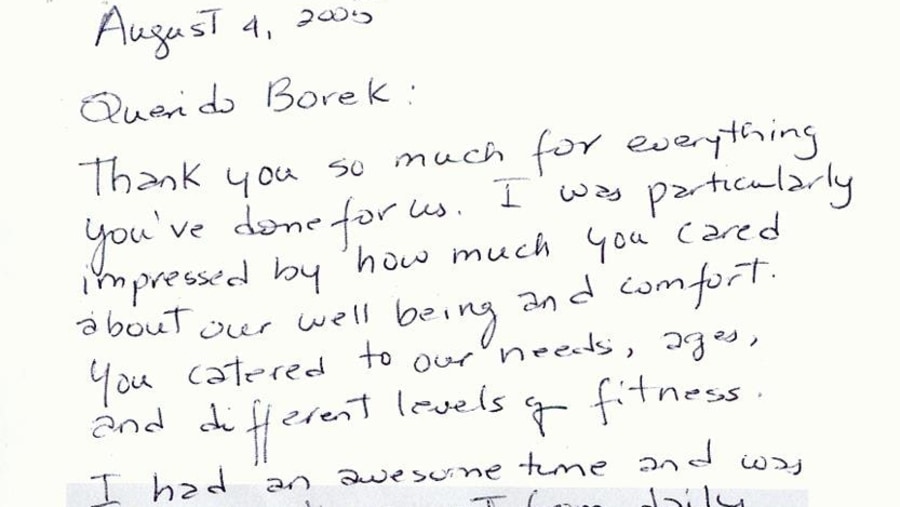 August 4, 2005
Querido Borek:
Thank you so much for everything
you've done for us. I was particularly
impressed by how much you cared
about our well being and comfort.
You catered to our needs, ages,
and different levels of fitness.
I had an awesome time and was
I daily